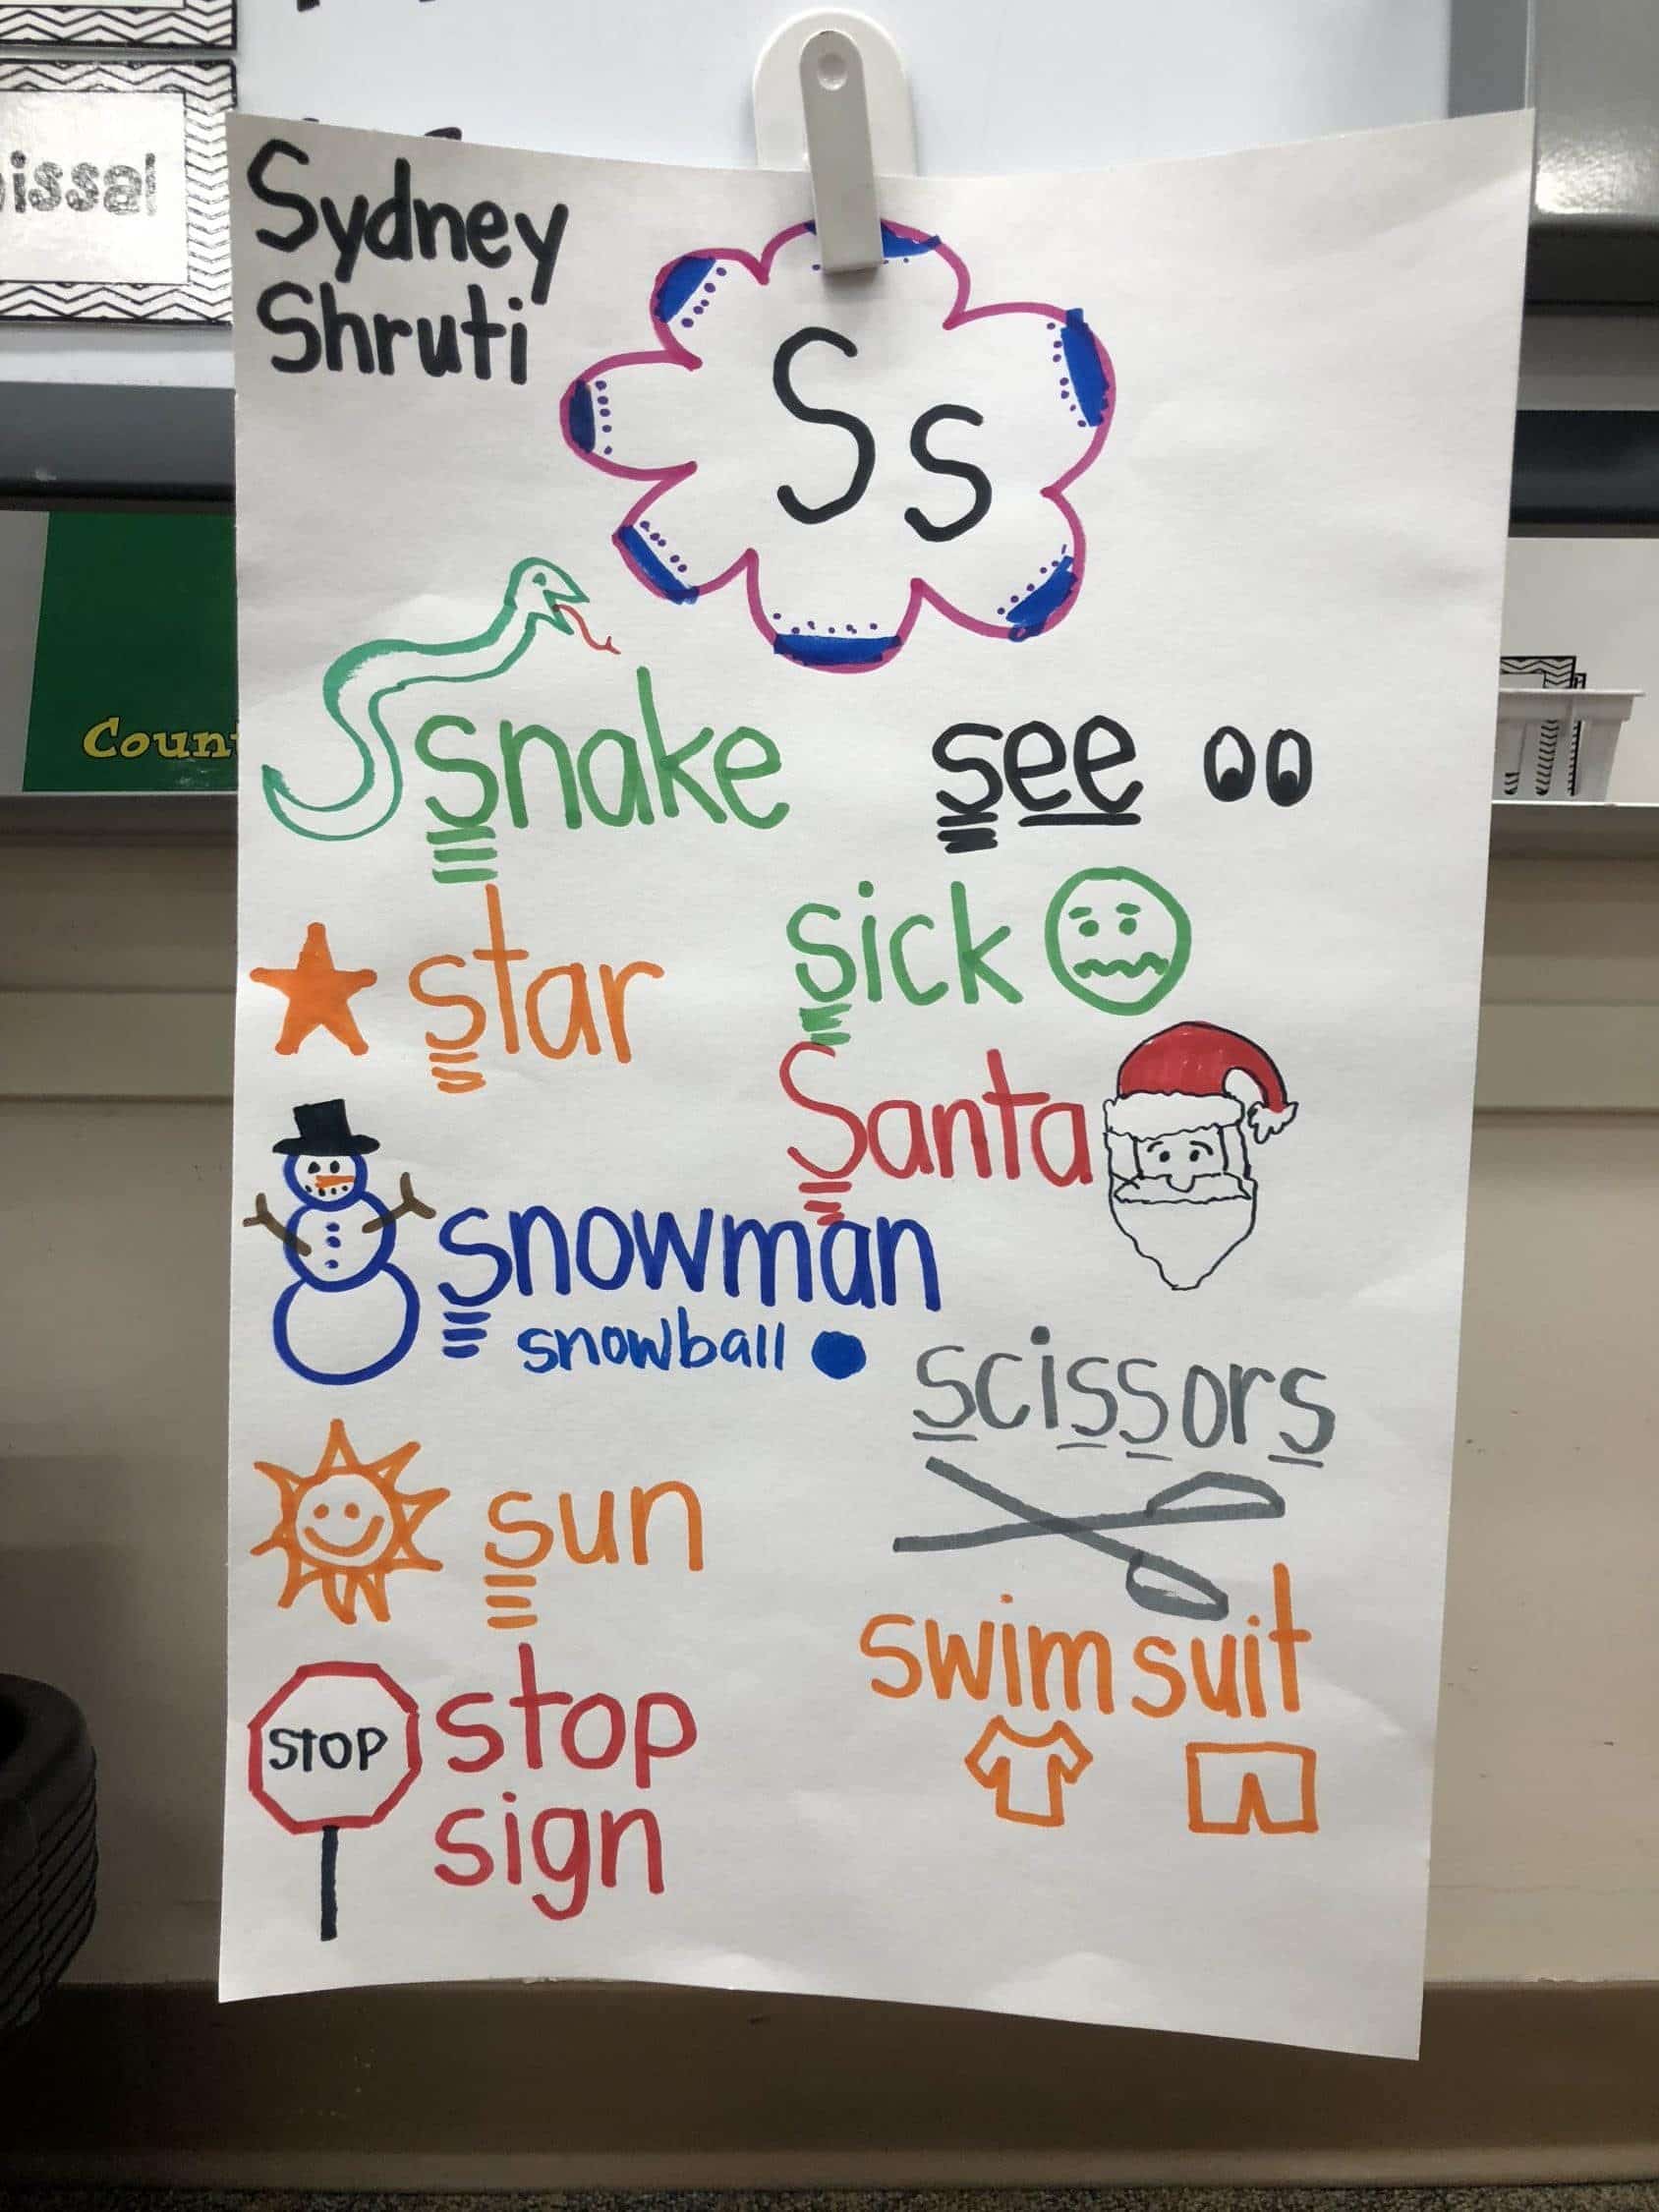 issal
Sydney
Shruti
Ss
Coun
snake
see
star
sick
Santa
snowman
snowball
scissors
sun
swimsuit
STOP
stop
sign